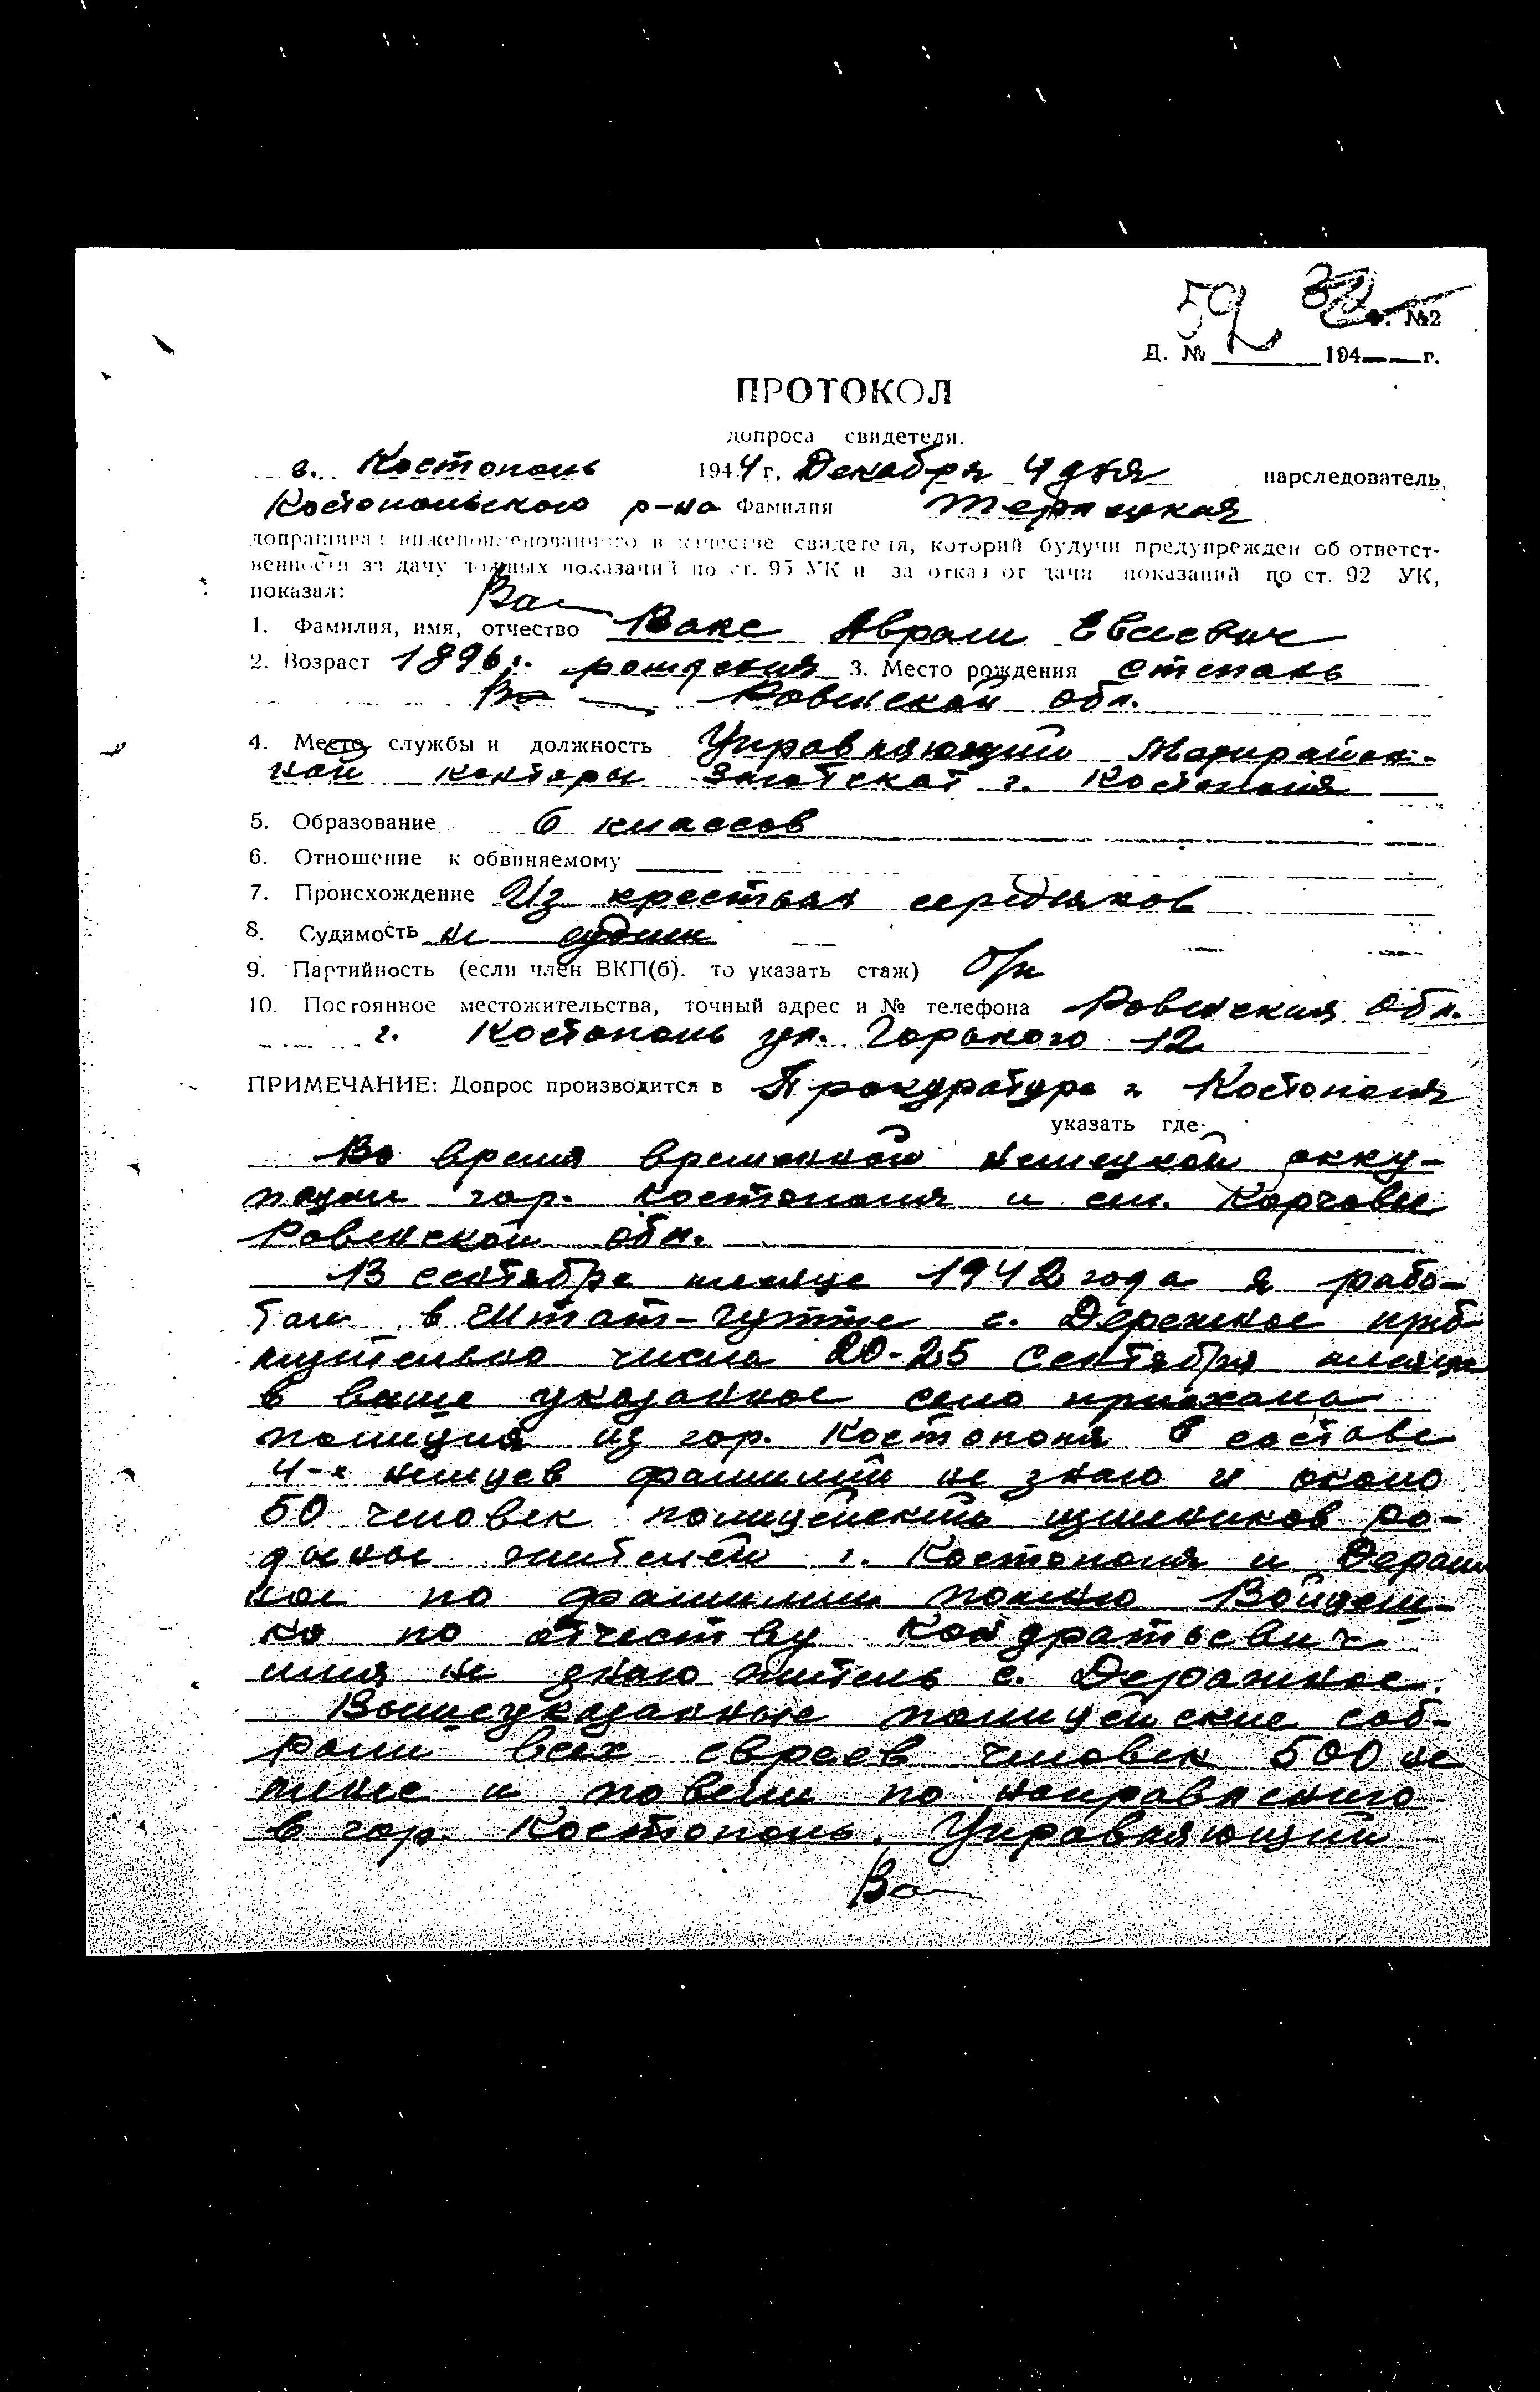 59
Ф. №2
Д. № 194 г.
ПРОТОКОЛ
допроса свидетеля.
г. Костополь 1944 г. Декабря 4 дня нарследователь
Костопольского р-на Фамилия
допрашивал нижепоименованного в качестве свидетеля, который будучи предупрежден об ответст-
венности за дачу ложных показаний по ст. 95 УК и за отказ от дачи показаний по ст. 92 УК,
показал:
1. Фамилия, имя, отчество Вакс Аврам Евсеевич
2. Возраст 1896 г. рождения 3. Место рождения Степань
Ровенской обл.
4. Место службы и должность Управляющий Межрайон-
ной конторы Заготскот г. Костополя
5. Образование 6 классов
6. Отношение к обвиняемому
7. Происхождение Из крестьян середняков
8. Судимость не судим
9. Партийность (если член ВКП(б). то указать стаж) б/п
10. Постоянное местожительства, точный адрес и № телефона Ровенская обл.
г. Костополь ул. Горького 12
ПРИМЕЧАНИЕ: Допрос производится в Прокуратуре г. Костополя
указать где
Во время временной немецкой окку-
пации гор. Костополя и см.
Ровенской обл.
13 сентября месяца 1942 года я рабо-
тал в с. Деражное приб
лизительно числа 20-25 сентября месяца
в выше указанное село приехала
полиция из гор. Костополя в составе
4-х немцев фамилий не знаю и около
50 человек полицейских изменников ро-
дины жителей г. Костополя и Дераж
ное по фамилии помню Войцеш-
ко по отчеству Кондратьевич
имя не знаю житель с. Деражное.
Вышеуказанные полицейские соб-
рали всех евреев человек 500 не
менее и повели по направлению
в гор. Костополь. Управляющий